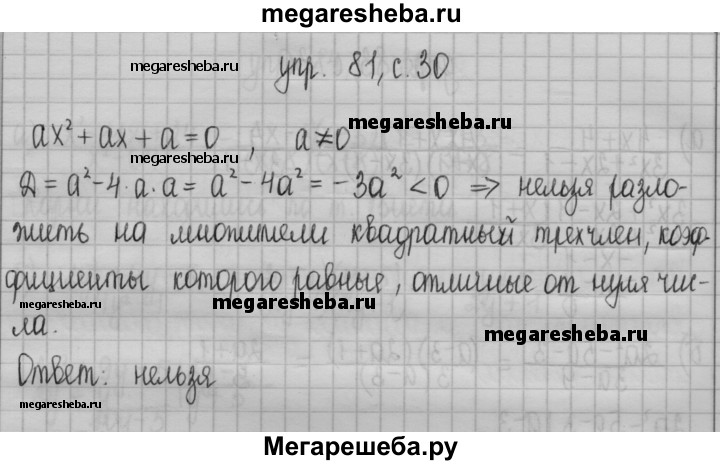 megaresheba.ru
megaresheba.ru
упр. 81, с. 30
megaresheba.ru
ax² + ax + a = 0 , a ≠ 0
megaresheba.ru
Д = a² - 4·a·a = a² - 4a² = -3a² < 0 ⇒ нельзя разло-
жить на множители квадратный трехчлен, коэф-
фициенты которого равные, отличные от нуля чис-
megaresheba.ru
megaresheba.ru
ла.
megaresheba.ru
Ответ: нельзя
megaresheba.ru
Мегарешеба.ру